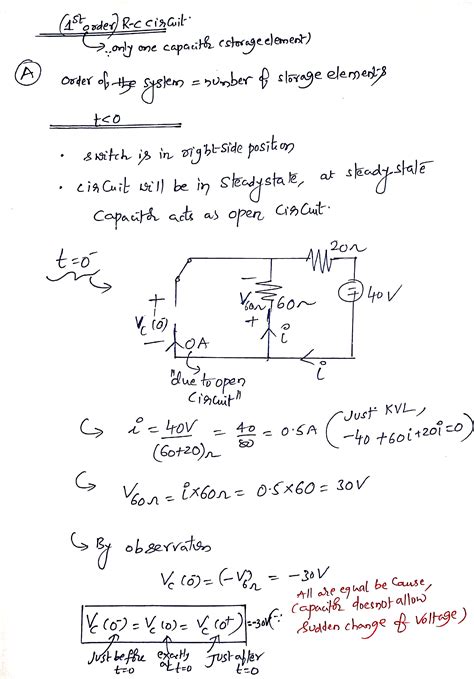 (1st order) R-C circuit.
↳ ∴ only one capacitor (storage element)
(A) order of the system = number of storage elements
t<0
• switch is in right-side position
• circuit will be in steadystate, at steadystate
capacitor acts as open circuit.
t=0⁻
20Ω
+ Vc(0⁻) −
− V60Ω + 60Ω
40V
i
0A
i
"due to open
circuit"
↳ i = 40V/(60+20)Ω = 40/80 = 0.5A (Just KVL,
-40 +60i+20i=0)
↳ V60Ω = i×60Ω = 0.5×60 = 30V
↳ By observation
Vc(0⁻) = (-V)60Ω = -30V
Vc(0⁻) = Vc(0) = Vc(0⁺) = -30V (∵ All are equal because,
capacitor doesnot allow
sudden change of voltage)
Just before t=0 exactly at t=0 Just after t=0